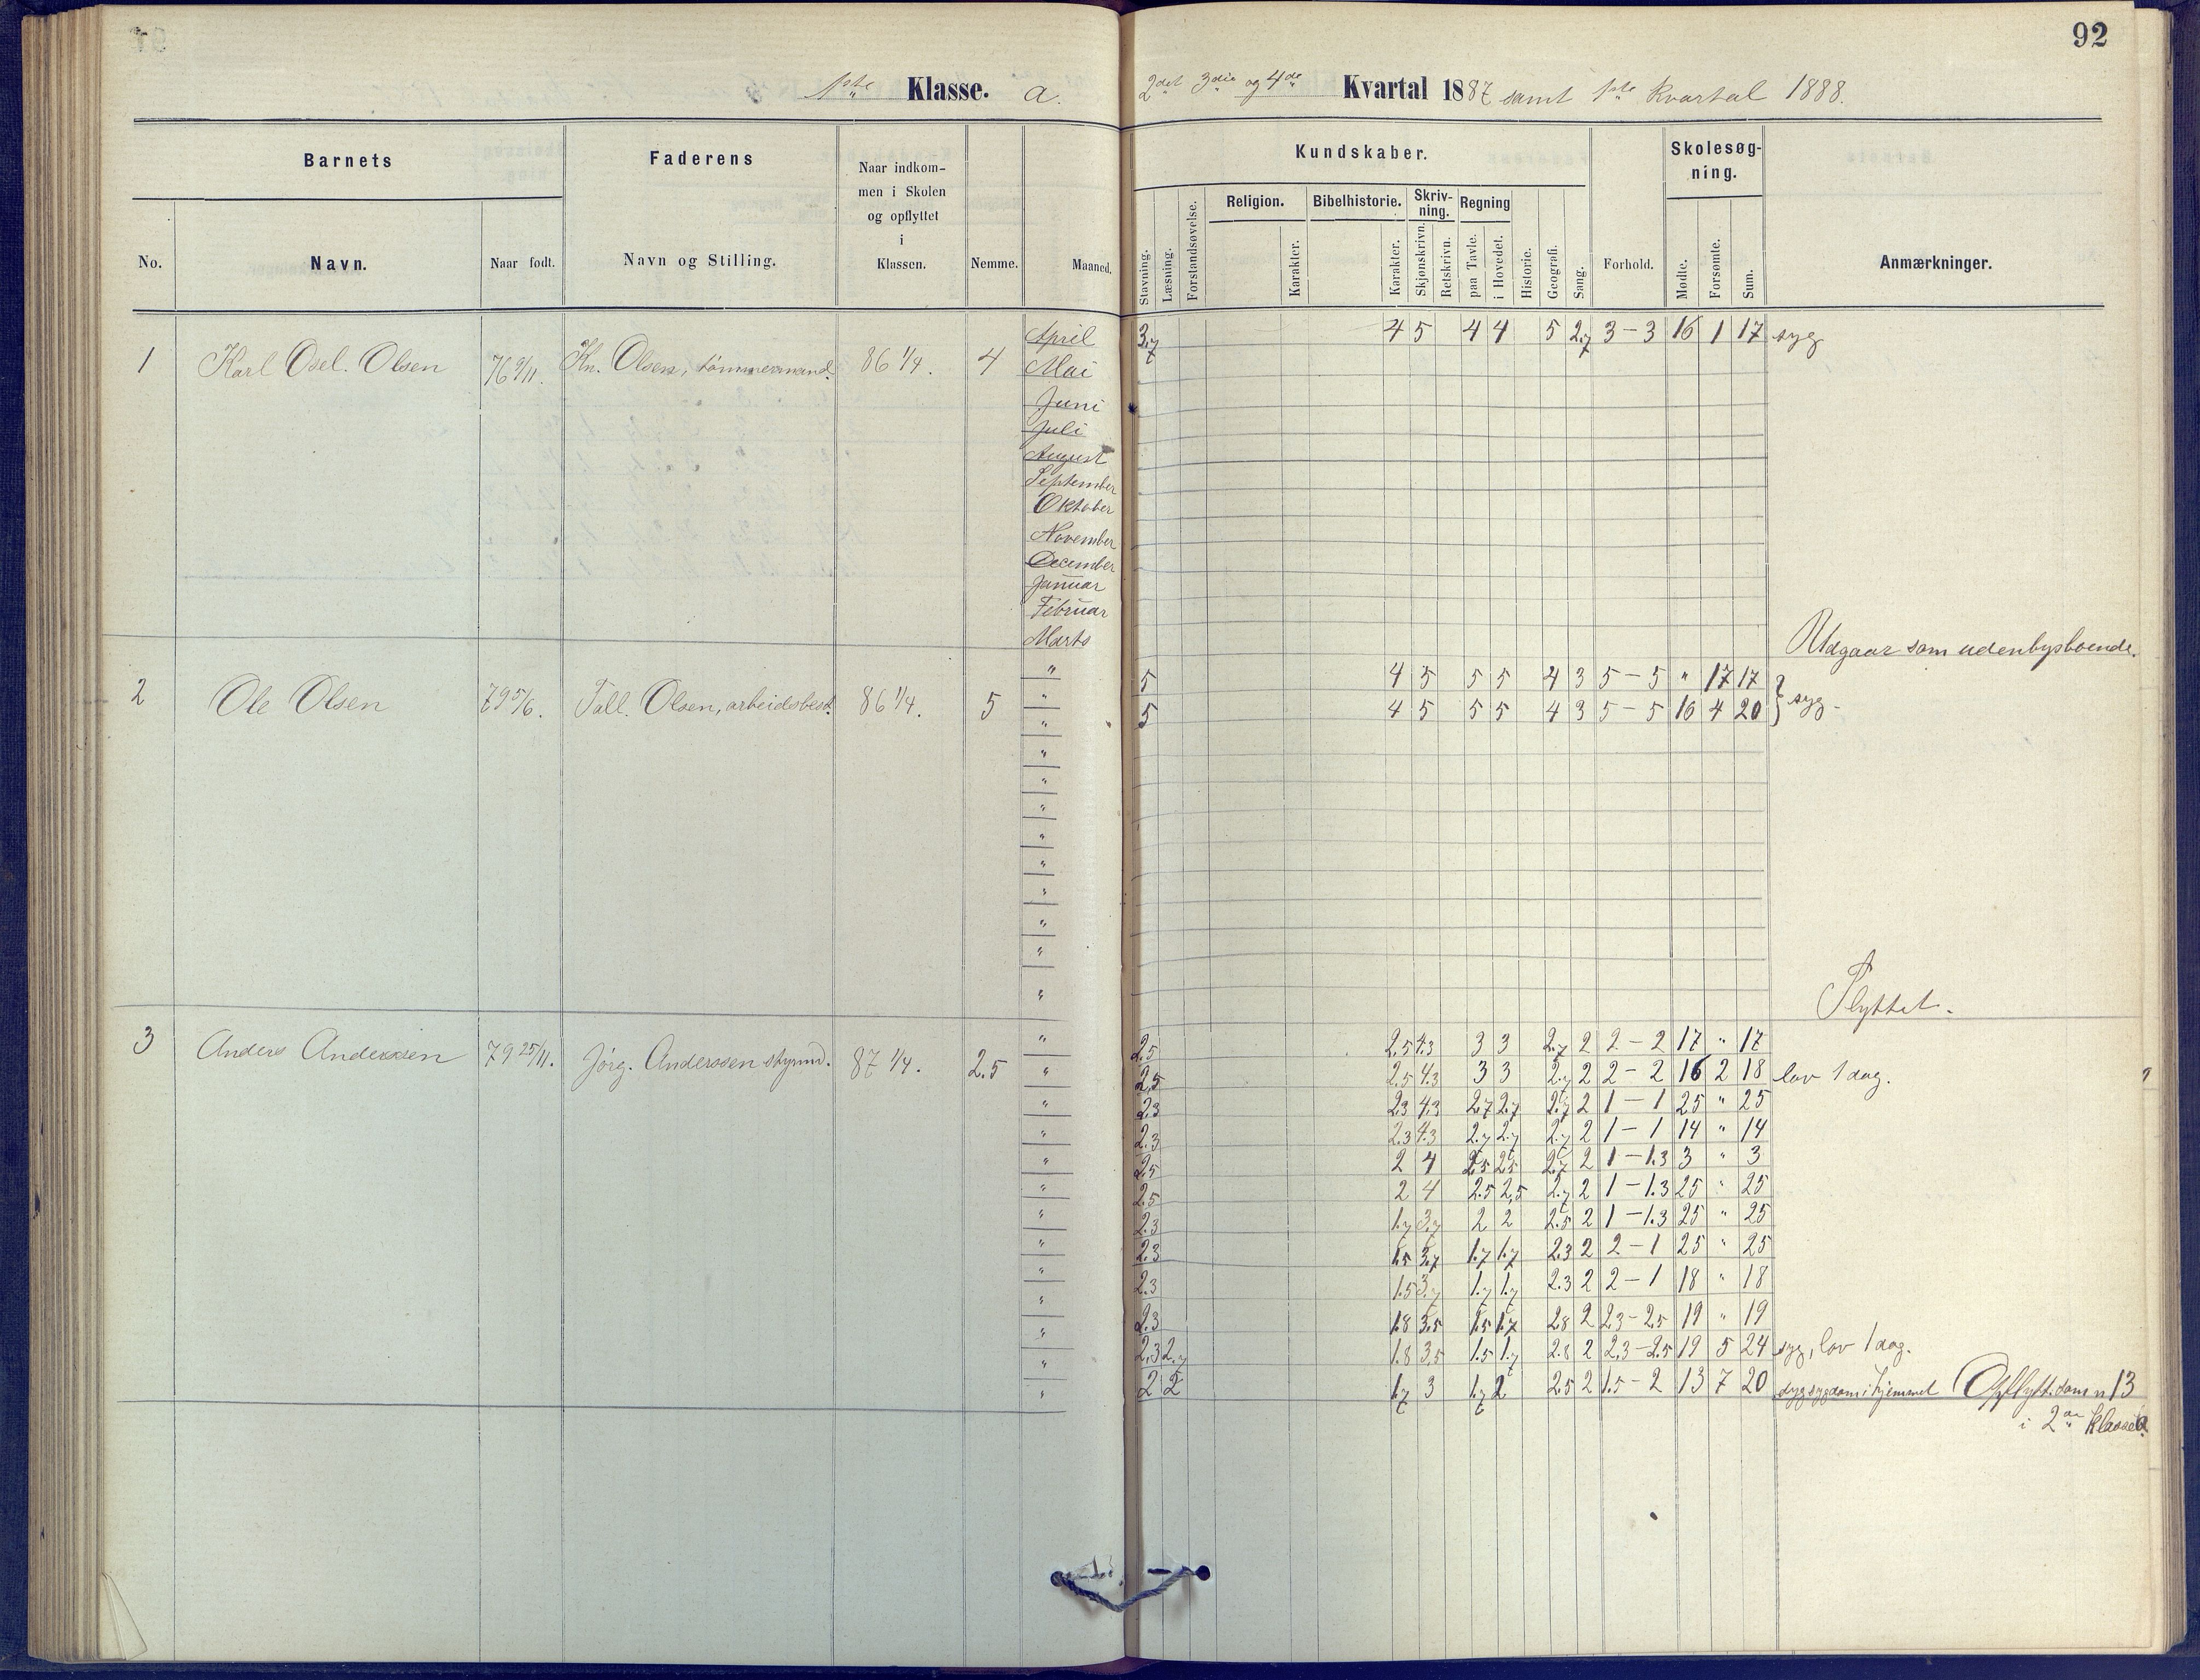 92
1ste Klasse. a. 2det 3die og 4de Kvartal 1887 samt 1ste Kvartal 1888.
Barnets Faderens Naar indkommen i Skolen og opflyttet i Klassen. Nemme. Maaned. Kundskaber. Forhold. Skolesøgning. Anmærkninger.
No. Navn. Naar født. Navn og Stilling.
Stavning. Læsning. Forstandsøvelse. Religion. Karakter. Bibelhistorie. Karakter. Skrivning. Skjønskrivn. Retskrivn. Regning paa Tavle. i Hovedet. Historie. Geografi. Sang. Mødte. Forsømte. Sum.
April 3.7 4 5 4 4 5 2.7 3 – 3 16 1 17 syg
1 Karl Olsen 76 9/11. Kn. Olsen, tømmermand. 86 1/4. 4 Mai
Juni
Juli
August
September
Oktober
November
December
Januar
Februar
Marts Udgaar som udenbysboende.
" 5 4 5 5 5 4 3 5 – 5 " 17 17
2 Ole Olsen 79 5/6. Tall. Olsen, arbeidsbest. 86 1/4. 5 " 5 4 5 5 5 4 3 5 – 5 16 4 20 } syg -
"
"
"
"
"
"
"
"
"
" Flyttet.
3 Anders Anderssen 79 25/11. Jörg. Anderssen styrmd. 87 1/4. 2.5
" 2.5 2.5 4.3 3 3 2.7 2 2 – 2 17 " 17
" 2.5 2.5 4.3 3 3 2.7 2 2 – 2 16 2 18 lov 1 dag.
" 2.3 2.3 4.3 2.7 2.7 2.7 2 1 – 1 25 " 25
" 2.3 2.3 4.3 2.7 2.7 2.7 2 1 – 1 14 " 14
" 2.5 2 4 2.5 2.5 2.7 2 1 – 1.3 3 " 3
" 2.5 2 4 2.5 2.5 2.7 2 1 – 1.3 25 " 25
" 2.3 1.7 3.7 2 2 2.5 2 1 – 1.3 25 " 25
" 2.3 1.5 3.7 1.7 1.7 2.3 2 2 – 1 25 " 25
" 2.3 1.5 3.7 1.7 1.7 2.3 2 2 – 1 18 " 18
" 2.3 1.8 3.5 1.5 1.7 2.8 2 2.3 – 2.5 19 " 19
" 2.3 2.7 1.8 3.5 1.5 1.7 2.8 2 2.3 – 2.5 19 5 24 syg, lov 1 dag.
" 2 2 1.7 3 1.7 2 2.5 2 1.5 – 2 13 7 20 syg sygdom i hjemmet Opflytt. som n 13
i 2den Klasse a.